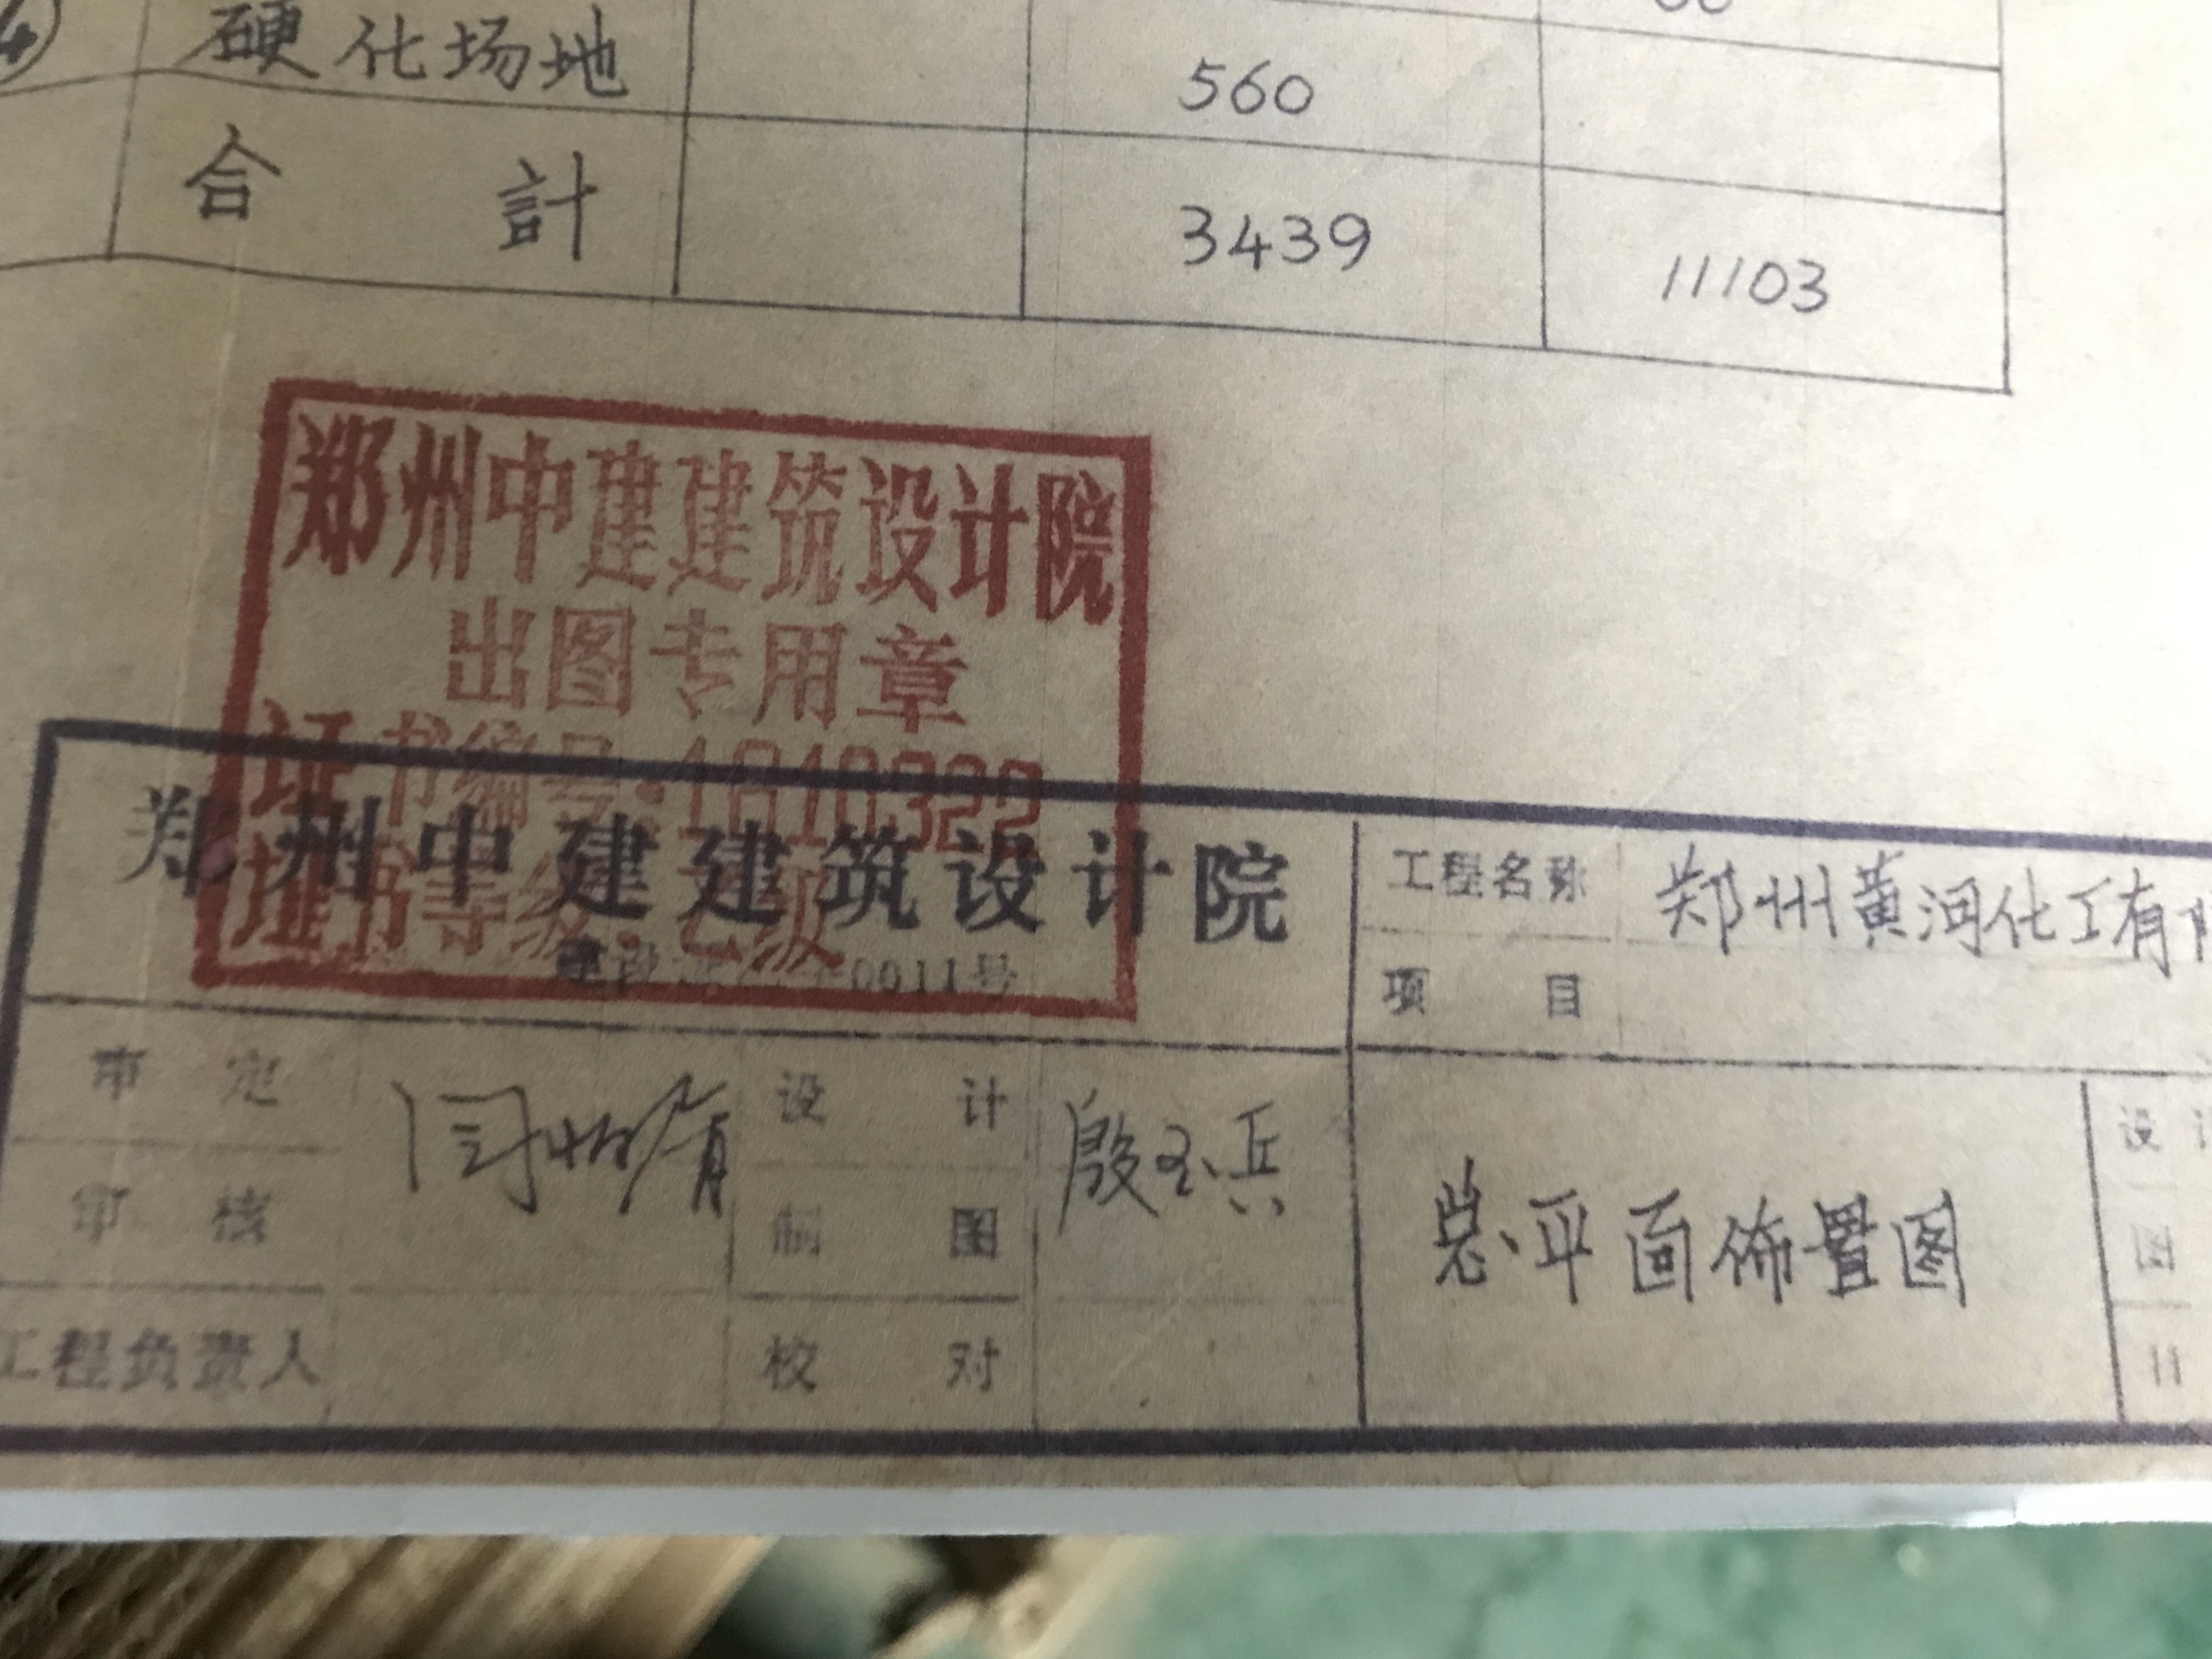 硬化场地 560
合計 3439 11103
郑州中建建筑设计院
出图专用章
证书编号:1810322
证书等级:乙级
郑州中建建筑设计院
0011号
工程名称 郑州黄河化工有
项目
审定 设计 殷玉兵
审核 制图
工程负责人 校对
总平面佈置图
设
图